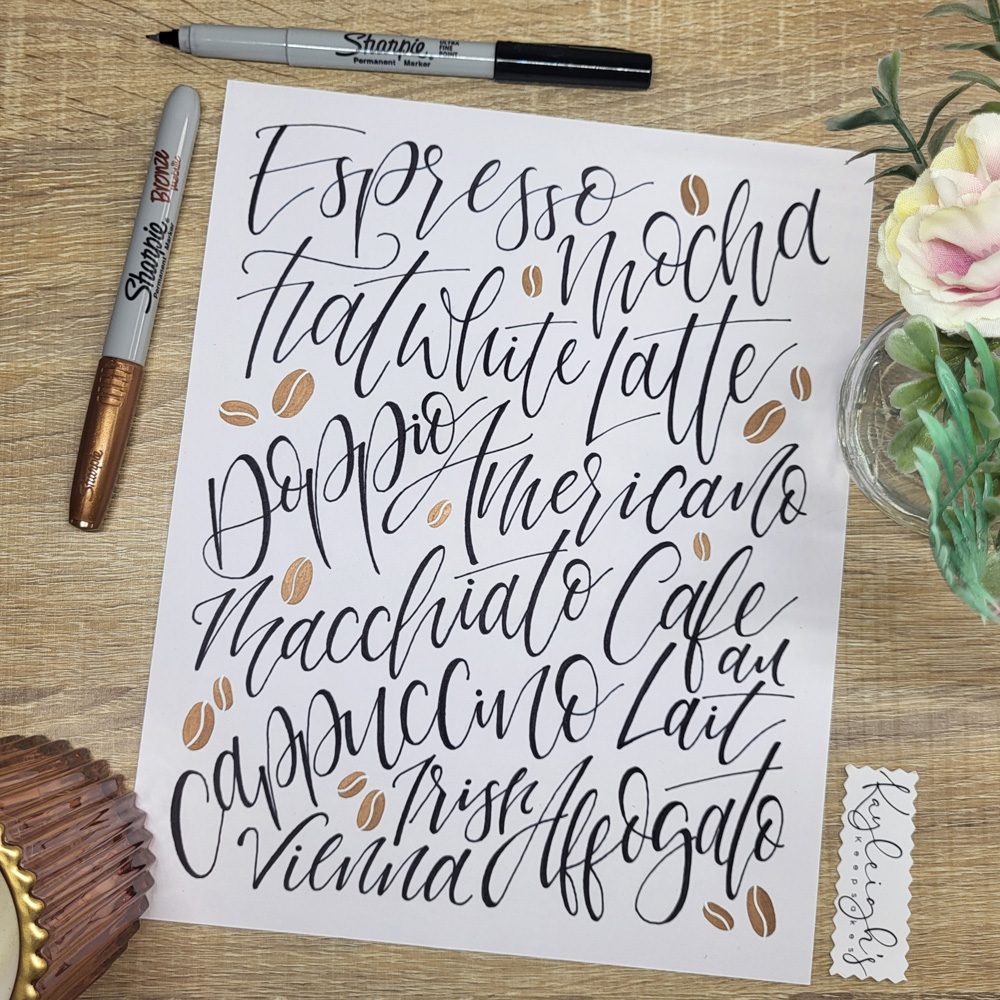 Sharpie ULTRA FINE POINT
Permanent Marker
Sharpie Bronze Metallic
Permanent Marker
Sharpie
Espresso
Mocha
Flat White Latte
Doppio Americano
Macchiato Cafe
au
Cappuccino Lait
Irish Affogato
Vienna
Kayleigh's
keepsakes